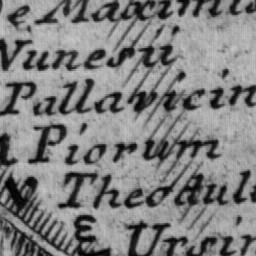 De Maximis
Nunesii
Pallavicin
Piorum
Theodul
& Ursin